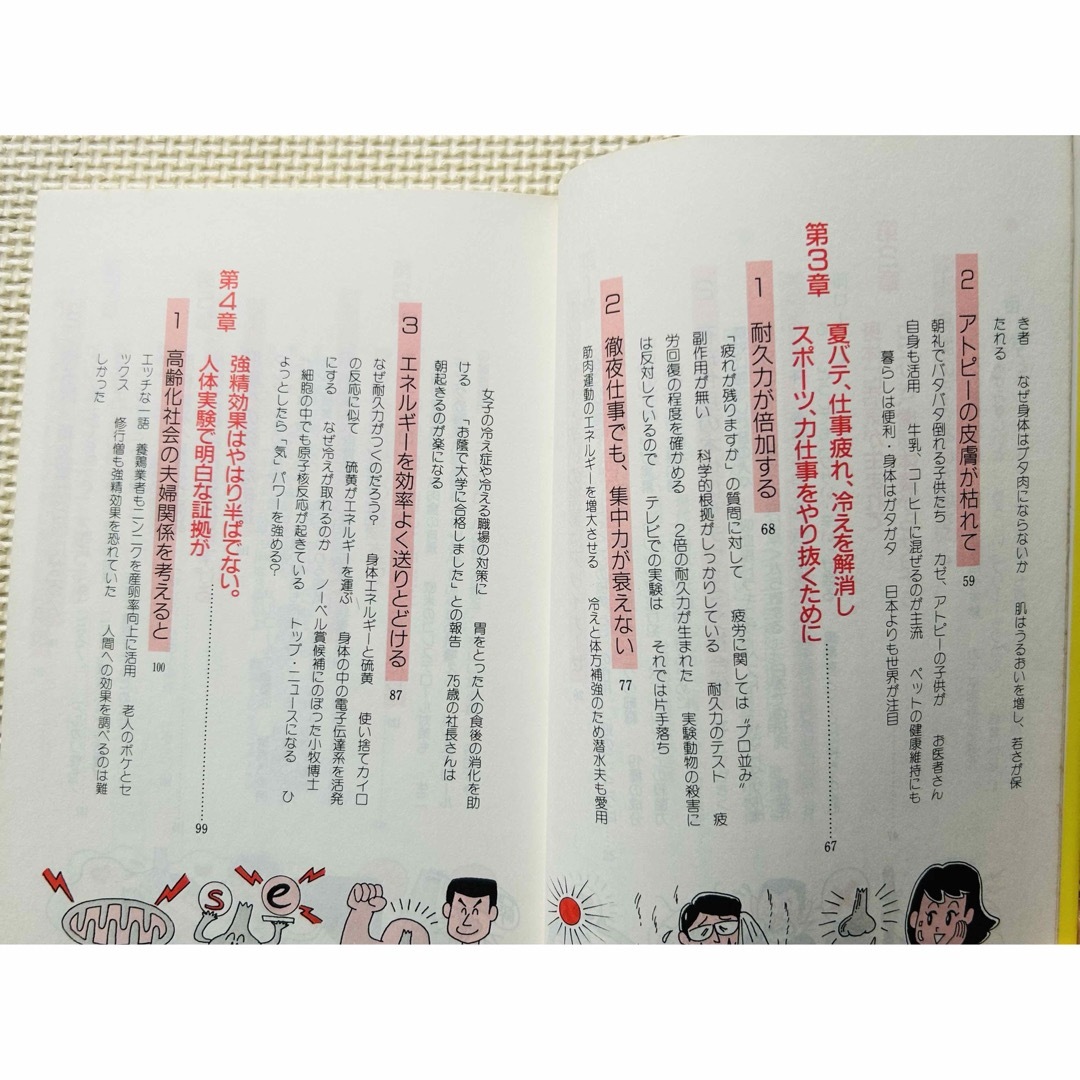 き者　なぜ身体はブタ肉にならないか　肌はうるおいを増し、若さが保
たれる
2 アトピーの皮膚が枯れて 59
朝礼でバタバタ倒れる子供たち　カゼ、アトピーの子供が　お医者さん
自身も活用　牛乳、コーヒーに混ぜるのが主流　ペットの健康維持にも
暮らしは便利・身体はガタガタ　日本よりも世界が注目
第3章
夏バテ、仕事疲れ、冷えを解消し
スポーツ、力仕事をやり抜くために………67
1 耐久力が倍加する 68
「疲れが残りますか」の質問に対して　疲労に関しては〝プロ並み〟
副作用が無い　科学的根拠がしっかりしている　耐久力のテスト　疲
労回復の程度を確かめる　2倍の耐久力が生まれた　実験動物の殺害に
は反対しているので　テレビでの実験は　それでは片手落ち
2 徹夜仕事でも、集中力が衰えない 77
筋肉運動のエネルギーを増大させる　冷えと体方補強のため潜水夫も愛用
女子の冷え症や冷える職場の対策に　胃をとった人の食後の消化を助
ける　「お蔭で大学に合格しました」との報告　75歳の社長さんは
朝起きるのが楽になる
3 エネルギーを効率よく送りとどける 87
なぜ耐久力がつくのだろう？　身体エネルギーと硫黄　使い捨てカイロ
の反応に似て　硫黄がエネルギーを運ぶ　身体の中の電子伝達系を活発
にする　なぜ冷えが取れるのか　ノーベル賞候補にのぼった小牧博士
細胞の中でも原子核反応が起きている　トップ・ニュースになる　ひ
ょっとしたら「気」パワーを強める？
第4章
強精効果はやはり半ぱでない。
人体実験で明白な証拠が………99
1 高齢化社会の夫婦関係を考えると 100
エッチな一語　養鶏業者もニンニクを産卵率向上に活用　老人のボケとセ
ックス　修行僧も強精効果を恐れていた　人間への効果を調べるのは難
しかった
s
e